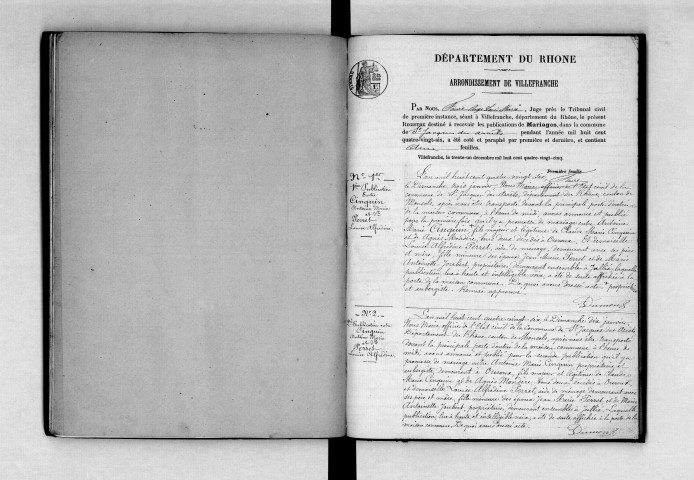 DÉPARTEMENT DU RHONE
ARRONDISSEMENT DE VILLEFRANCHE
PAR NOUS, Juge près le Tribunal civil
de première instance, séant à Villefranche, département du Rhône, le présent
REGISTRE destiné à recevoir les publications de Mariages, dans la commune
de St Jacques des Arrêts pendant l'année mil huit cent
quatre-vingt-six, a été coté et paraphé par première et dernière, et contient
feuilles.
Villefranche, le trente-un décembre mil huit cent quatre-vingt-cinq.
Première feuille
No 1er
1re Publication
Entre
Cinquin
Antoine Marie
et Dlle
Perret
Louise Alfrédine
L'an mil huit cent quatre vingt six,
le Dimanche trois janvier, Nous Maire, officier de l'Etat civil de la
commune de St Jacques des Arrêts, département du Rhône, canton de
Monsols, après nous être transporté devant la principale porte d'entrée
de la maison commune, à l'heure de midi, avons annoncé et publié
pour la première fois qu'il y a promesse de mariage entre Antoine
Marie Cinquin, fils majeur et légitime de Claude Marie Cinquin
et de Agnès tous deux décédés à Ouroux. Et demoiselle
Louise Alfrédine Perret, aide de ménage, demeurant avec ses père
et mère, fille mineure des époux Jean Marie Perret et de Marie
Antoinette Joubert, propriétaires, demeurant ensemble à Jullié, laquelle
publication, lue à haute et intelligible voix, a été de suite affichée à la
porte de la maison commune. De quoi avons dressé acte. propriétaire
et aubergiste.
Dumont
No 2
2e Publication entre
Cinquin
Antoine Marie
et Dlle
Perret
Louise Alfrédine
L'an mil huit cent quatre vingt-six, le Dimanche dix janvier,
Nous Maire, officier de l'Etat civil de la commune de St Jacques des Arrêts
Département du Rhône, canton de Monsols, après nous être transporté
devant la principale porte d'entrée de la maison commune, à l'heure de
midi, avons annoncé et publié pour la seconde publication qu'il y a
promesse de mariage entre Antoine Marie Cinquin propriétaire et
aubergiste, demeurant à Ouroux, fils majeur et légitime de Claude
Marie Cinquin, et de Agnès tous deux décédés à Ouroux
et demoiselle Louise Alfrédine Perret, aide de ménage demeurant avec
ses père et mère, fille mineure des époux Jean Marie Perret et de Marie
Antoinette Joubert, propriétaires, demeurant ensemble à Jullié. Laquelle
publication, lue à haute et intelligible voix, a été de suite affichée à la porte de la
maison commune. De quoi avons dressé acte.
Dumont